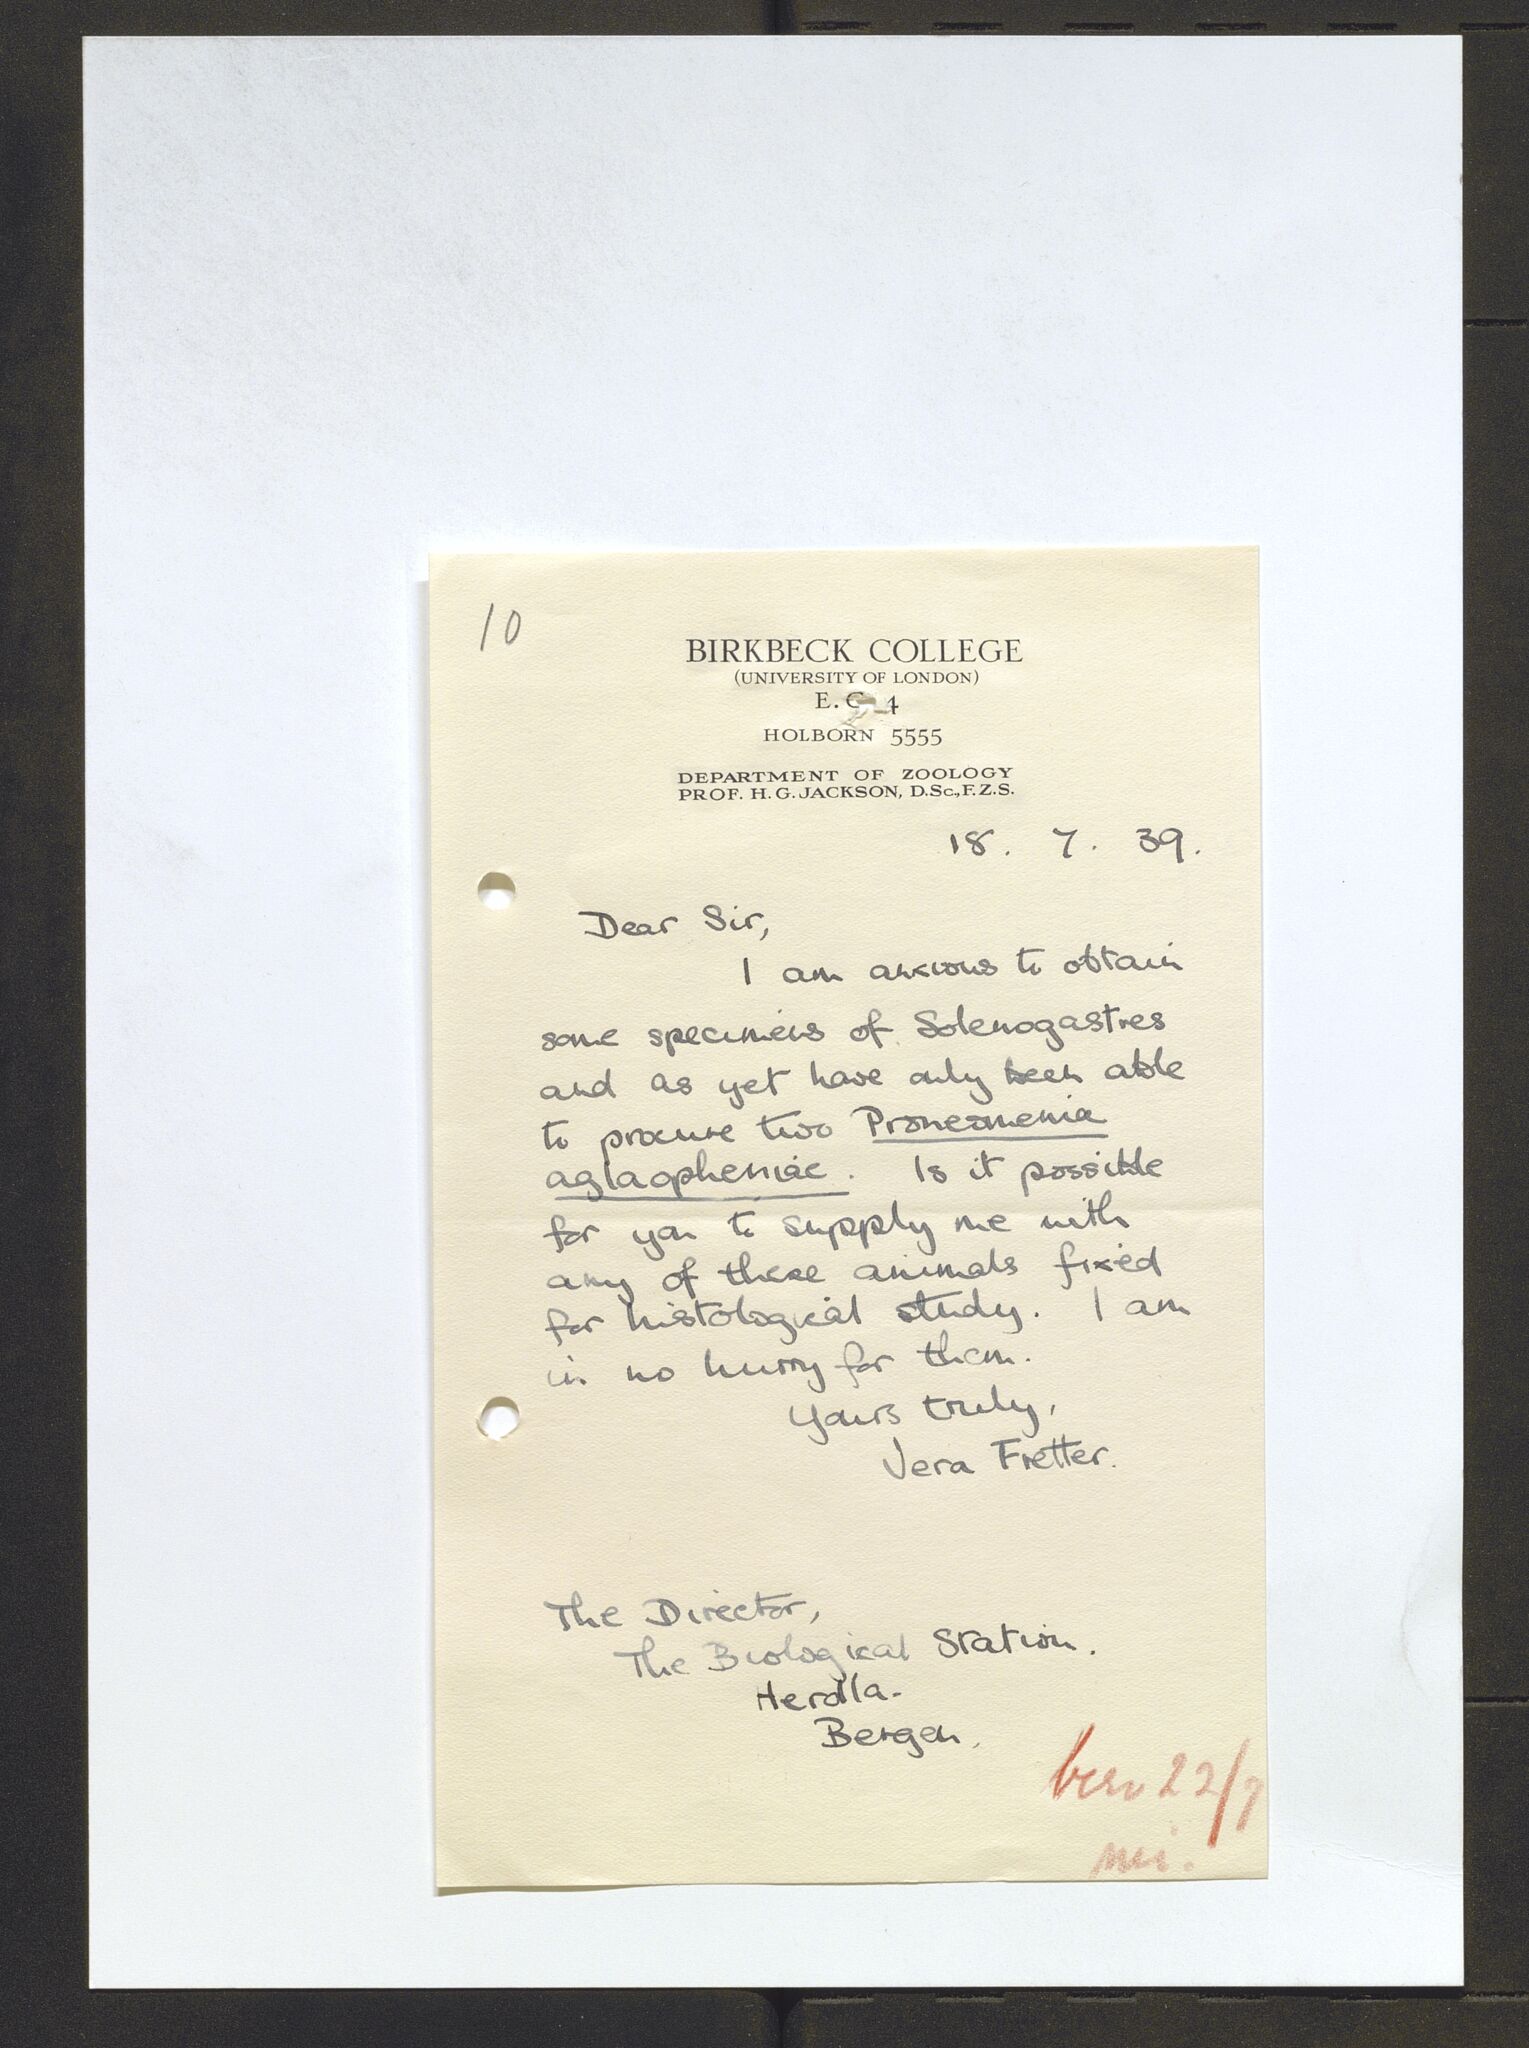 10
BIRKBECK COLLEGE
(UNIVERSITY OF LONDON)
E. C. 4
HOLBORN 5555
DEPARTMENT OF ZOOLOGY
PROF. H. G. JACKSON, D.Sc., F.Z.S.
18. 7. 39.
Dear Sir,
I am anxious to obtain
some specimens of Solenogastres
and as yet have only been able
to procure two Proneomenia
aglaopheniae. Is it possible
for you to supply me with
any of these animals fixed
for histological study. I am
in no hurry for them.
Yours truly,
Vera Fretter.
The Director,
The Biological Station.
Herdla.
Bergen.
besv 22/7